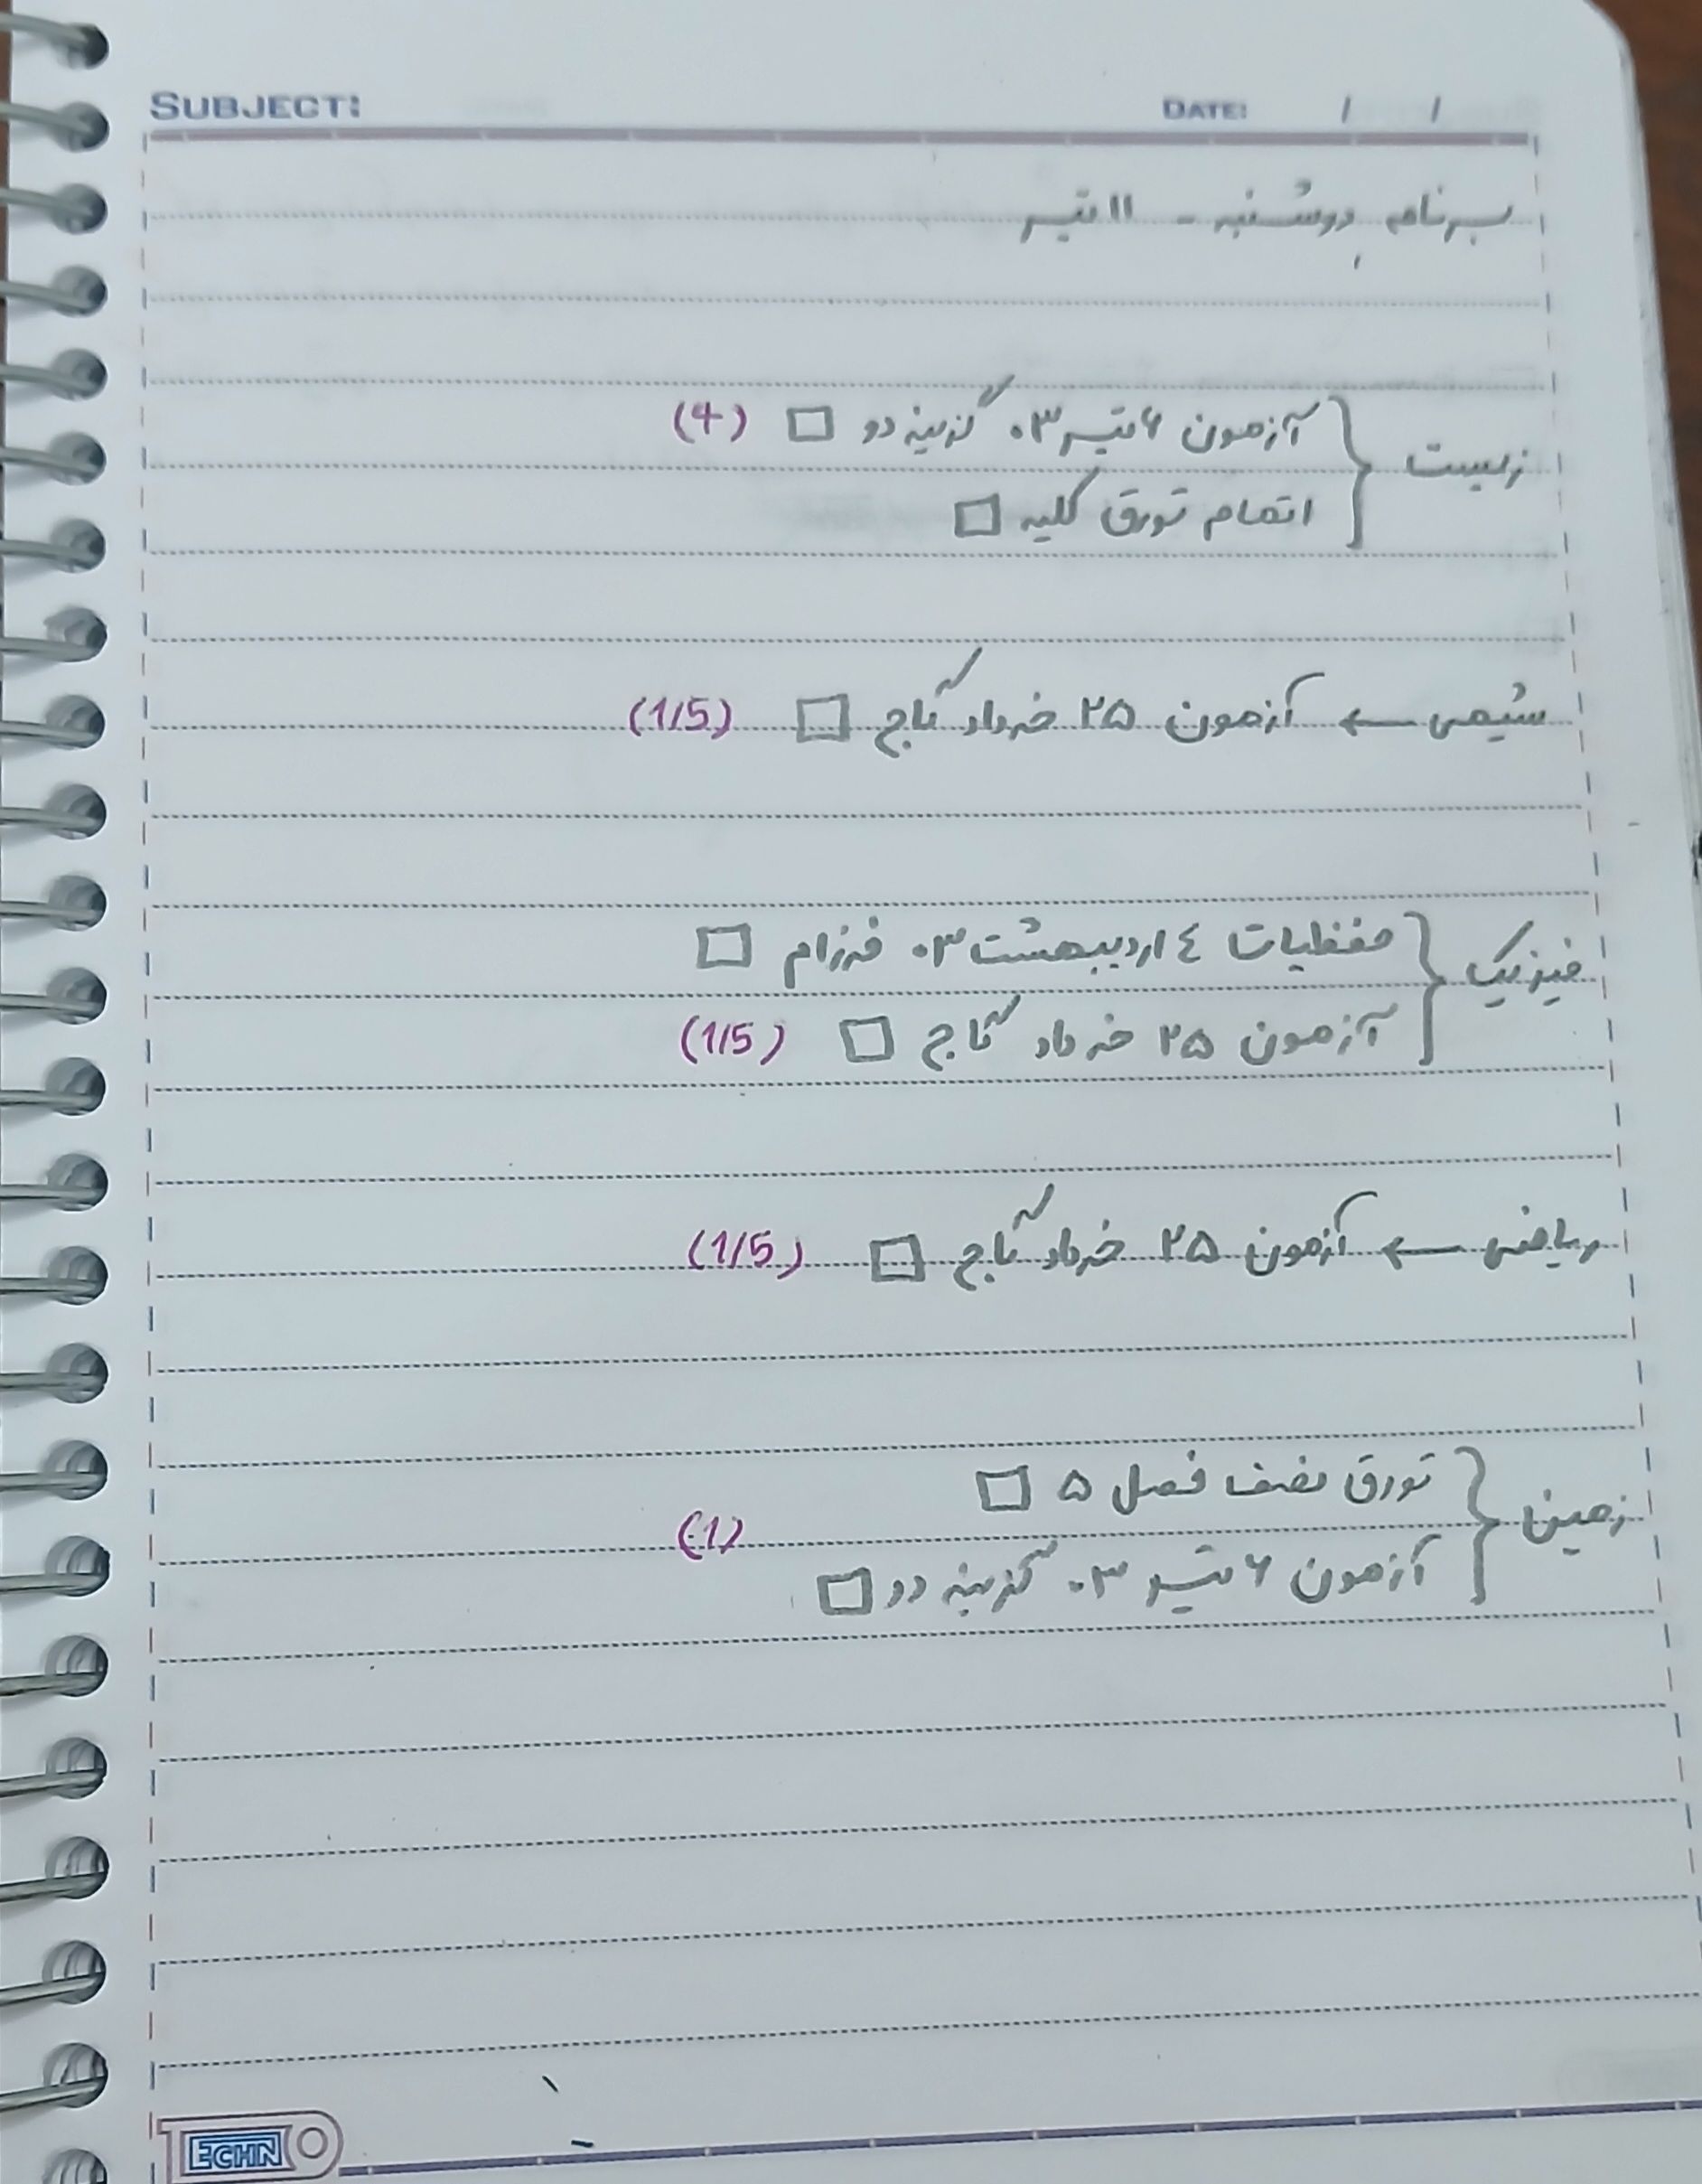 SUBJECT: DATE: / /
برنامه دوشنبه - ۱۱ تیر
زیست { آزمون ۶ تیر ۰۳ گزینه دو □ (4)
اتمام تورق کلیه □
شیمی ← آزمون ۲۵ خرداد گاج □ (1/5)
فیزیک { حفظیات ٤ اردیبهشت ۰۳ فرزام □
آزمون ۲۵ خرداد گاج □ (1/5)
ریاضی ← آزمون ۲۵ خرداد گاج □ (1/5)
زمین { تورق نصف فصل ۵ □
(1)
آزمون ۶ تیر ۰۳ گزینه دو □
ECHN